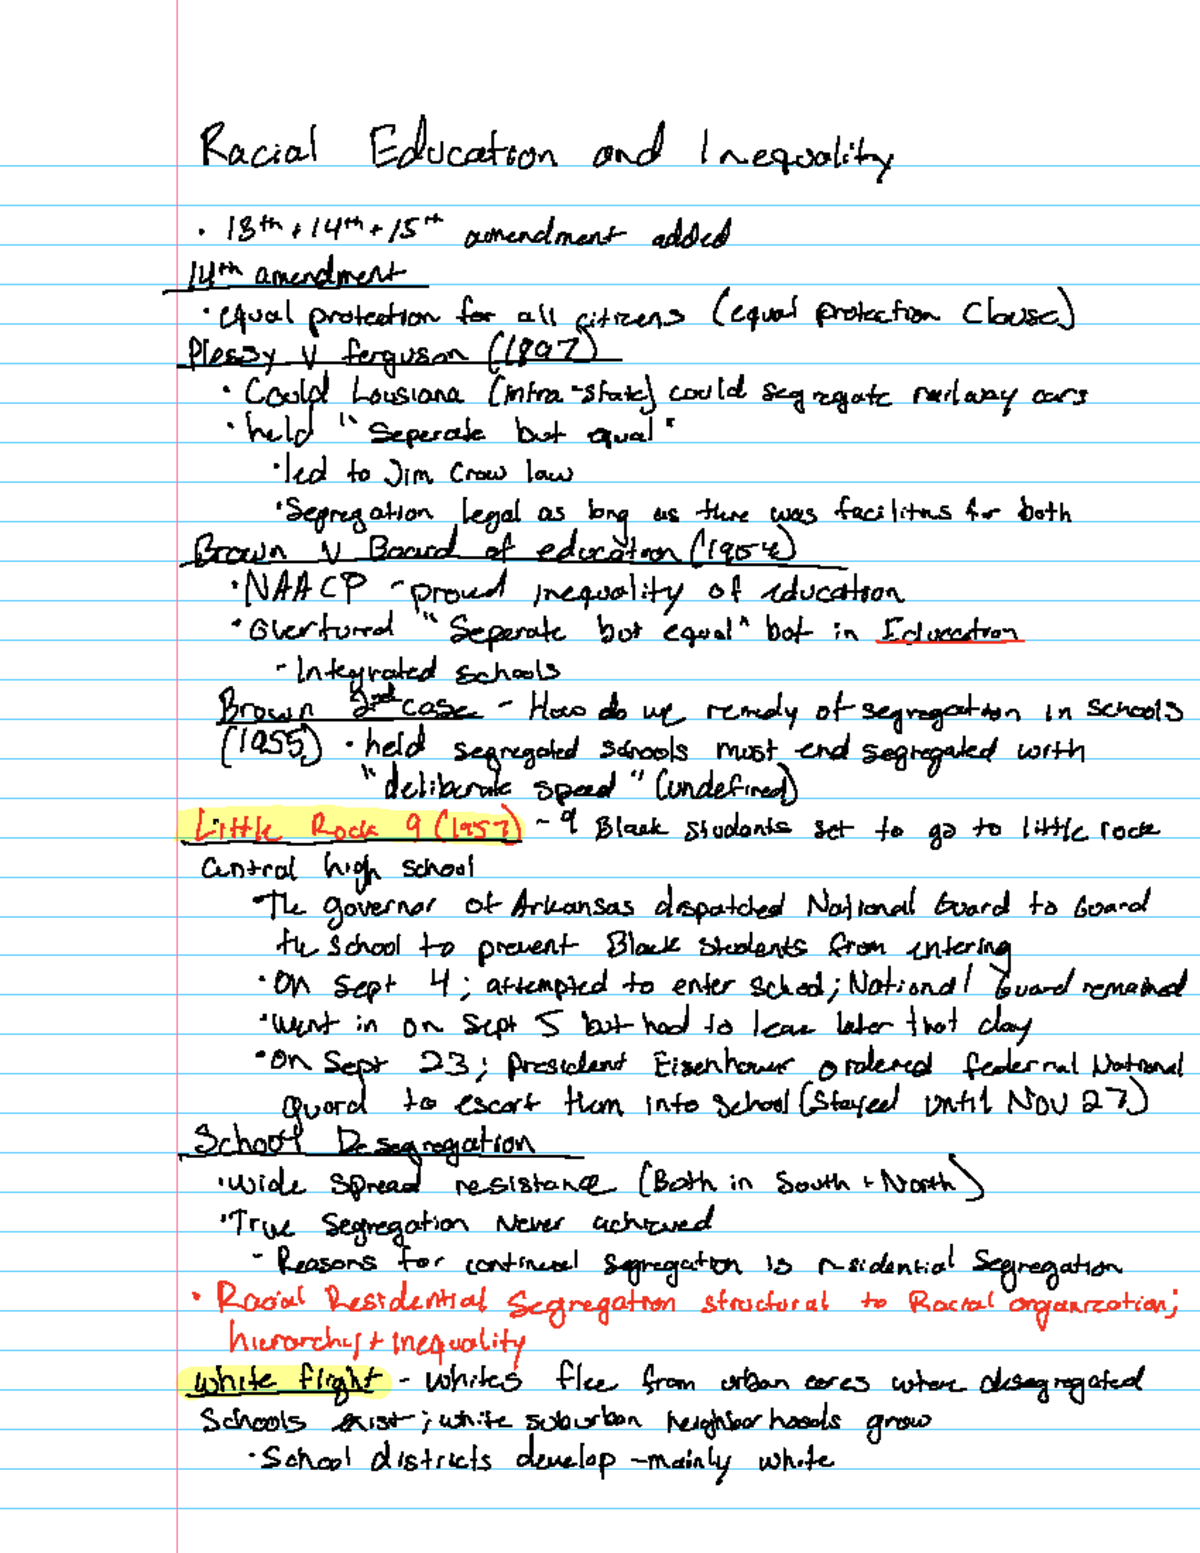 Racial Education and Inequality
• 13th + 14th + 15th amendment added
14th amendment
• equal protection for all citizens (equal protection Clause)
Plessy v ferguson (1897)
• Could Lousiana (intra-state) could segregate railway cars
• held "Seperate but equal"
• led to Jim Crow law
• Segregation legal as long as there was facilities for both
Brown v Board of education (1954)
• NAACP - proved inequality of education
• Overturned "Seperate but equal" but in Education
- Integrated schools
Brown 2nd case - How do we remedy of segregation in schools
(1955) • held segregated schools must end segregated with
"deliberate speed" (undefined)
Little Rock 9 (1957) - 9 Black students set to go to little rock
Central high school
• The governor of Arkansas dispatched National Guard to Guard
the school to prevent Black students from entering
• On Sept 4; attempted to enter school; National Guard remained
• Went in on Sept 5 but had to leave later that day
• On Sept 23; President Eisenhower ordered federal National
guard to escort them into school (Stayed until Nov 27)
School Desegregation
• wide spread resistance (Both in South + North)
• True Segregation Never achieved
- Reasons for continued segregation is residential Segregation
• Racial Residential Segregation structural to Racial organization;
hierarchy + Inequality
White flight - whites flee from urban cores where desegregated
Schools exist; white suburban neighborhoods grow
• School districts develop - mainly white